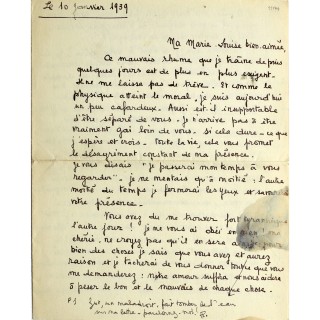 Le 10 Janvier 1939
Ma Marie-Louise bien-aimée,
Ce mauvais rhume que je traîne depuis
quelques jours est de plus en plus exigent.
Il ne me laisse pas de trève. Et comme le
physique atteint le moral, je suis aujourd'hui
un peu cafardeux. Aussi est-il insupportable
d'être séparé de vous. Je n'arrive pas à être
vraiment gai loin de vous. Si cela dure - ce que
j'espère et crois - toute la vie, cela vous promet
le désagrément constant de ma présence.
Je vous disais "je passerai mon temps à vous
regarder", je ne mentais qu'à moitié: l'autre
moitié du temps je fermerai les yeux et
votre présence.
Vous avez dû me trouver fort
l'autre jour! Je ne vous ai obéi en rien! Ma
chérie, ne croyez pas qu'il en sera ainsi. Pour
bien des choses je sais que vous avez et aurez
raison et je tâcherai de vous donner tout ce que vous
me demanderez: notre amour suffira et nous aidera
à peser le bon et le mauvais de chaque chose.
P.S. un maladroit, fait tomber de l'eau
sur ma lettre - pardonnez-moi!